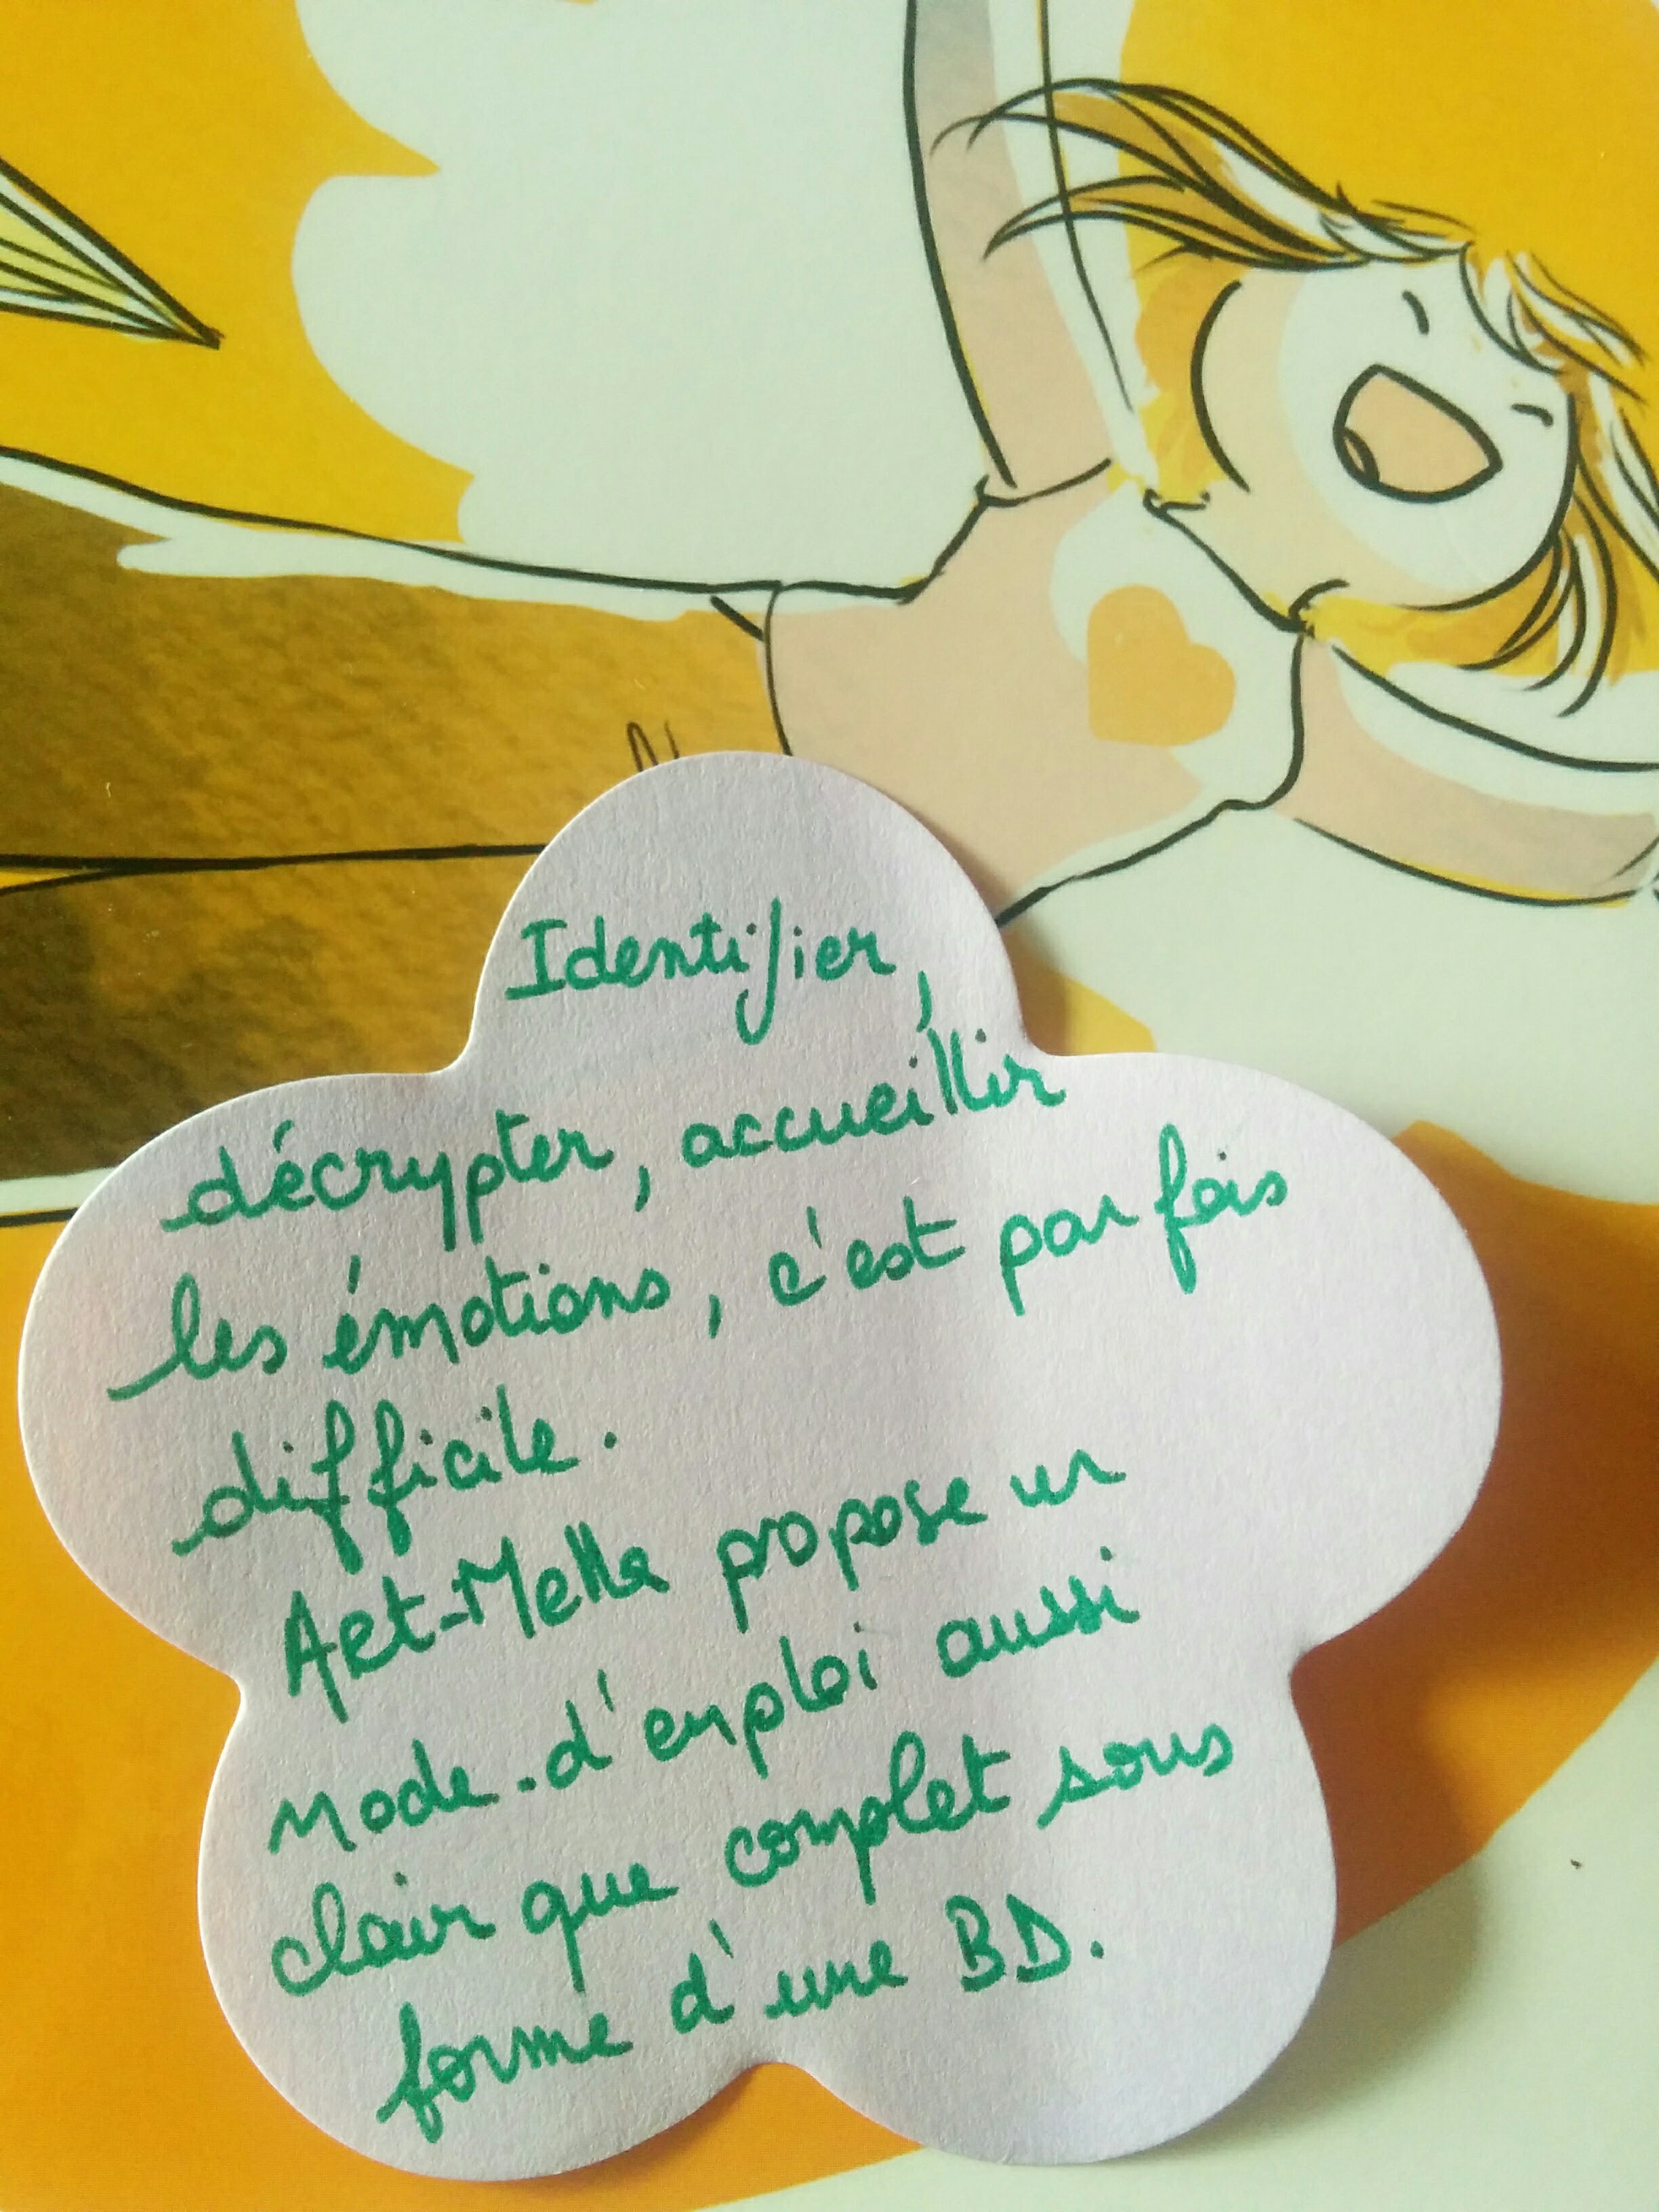 Identifier,
décrypter, accueillir
les émotions, c'est parfois
difficile.
Art-Mella propose un
mode.d'emploi aussi
clair que complet sous
forme d'une BD.